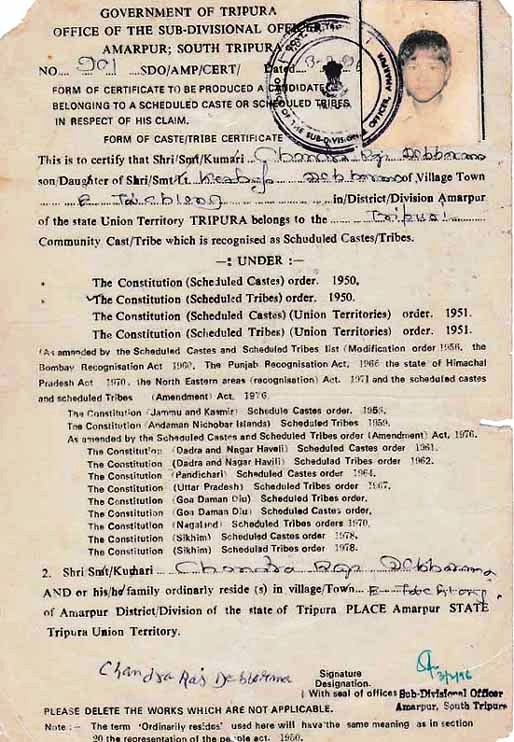 GOVERNMENT OF TRIPURA
OFFICE OF THE SUB-DIVISIONAL OFFICER,
AMARPUR; SOUTH TRIPURA
NO.... 901 .....SDO/AMP/CERT/ Dated
FORM OF CERTIFICATE TO BE PRODUCED A CANDIDATE
BELONGING TO A SCHEDULED CASTE OR SCHEDULED TRIBES
IN RESPECT OF HIS CLAIM.
FORM OF CASTE/TRIBE CERTIFICATE
OFFICE OF THE SUB-DIVISIONAL OFFICER, AMARPUR
This is to certify that Shri/Smt/Kumari Chandra Raj Debbarma
son/Daughter of Shri/Smt Debbarma of Village Town
in/District/Division Amarpur
of the state Union Territory TRIPURA belongs to the Tripuri
Community Cast/Tribe which is recognised as Schuduled Castes/Tribes.
—: UNDER :—
The Constitution (Scheduled Castes) order. 1950,
The Constitution (Scheduled Tribes) order. 1950.
The Constitution (Scheduled Castes) (Union Territories) order. 1951.
The Constitution (Scheduled Tribes) (Union Territories) order. 1951.
(As amended by the Scheduled Castes and Scheduled Tribes list (Modification order 1956, the
Bombay Recognisation Act 1960, The Punjab Recognisation Act, 1966 the state of Himachal
Pradesh Act 1970. the North Eastern areas (recognisation) Act. 1971 and the scheduled castes
and scheduled Tribes (Amendment) Act, 1976
The Constitution (Jammu and Kasmir) Schedule Castes order. 1956,
The Constitution (Andaman Nichobar Islands) Scheduled Tribes 1959.
As amended by the Scheduled Castes and Scheduled Tribes order (Amendment) Act, 1976.
The Constitution (Dadra and Nagar Haveli) Scheduled Castes order 1961.
The Constitution (Dadra and Nagar Havili) Scheduled Tribes order 1962.
The Constitution (Pandichari) Scheduled Castes order 1964.
The Constitution (Uttar Pradesh) Scheduled Tribes order 1967,
The Constitution (Goa Daman Diu) Scheduled Tribes order.
The Constitution (Goa Daman Diu) Scheduled Castes order,
The Constitution (Nagaland) Scheduled Tribes orders 1970.
The Constitution (Sikhim) Scheduled Castes order 1978,
The Constitution (Sikhim) Scheduled Tribes order 1978.
2. Shri Smt/Kumari Chandra Raj Debbarma
AND or his/her family ordinarily reside (s) in village/Town...
of Amarpur District/Division of the state of Tripura PLACE Amarpur STATE
Tripura Union Territory.
Chandra Raj Debbarma
Signature
Designation.
( With seal of offices Sub-Divisional Officer
Amarpur, South Tripura
PLEASE DELETE THE WORKS WHICH ARE NOT APPLICABLE.
Note :- The term 'Ordinarily resides' used here will have the same meaning as in section
20 the representation of the people act. 1950.